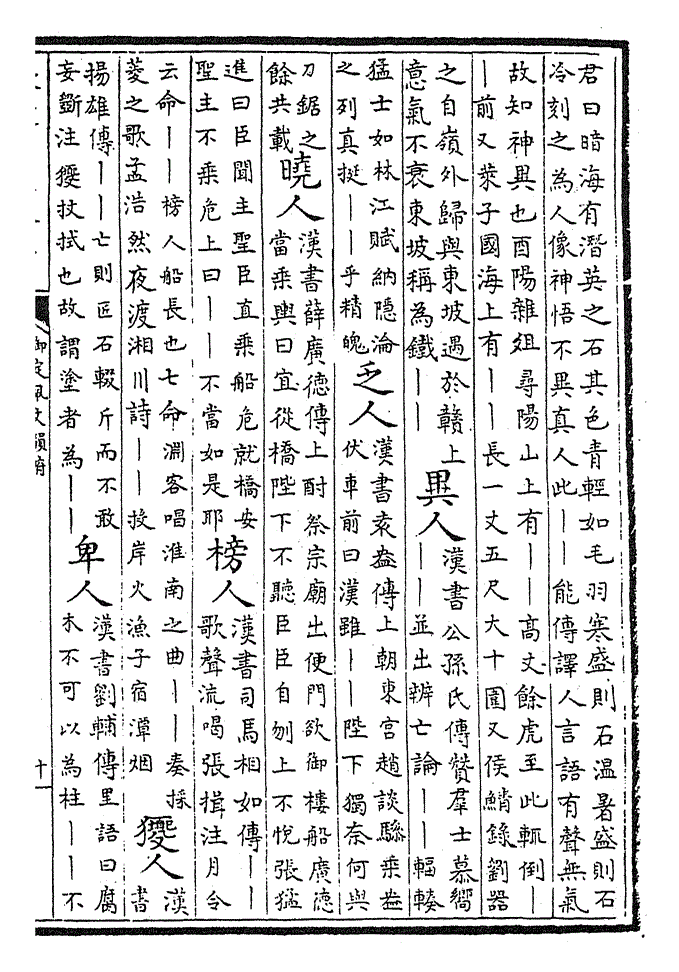 君曰暗海有潛英之石其色青輕如毛羽寒盛則石溫暑盛則石
冷刻之為人像神悟不異真人此｜｜能傳譯人言語有聲無氣
故知神異也酉陽雜俎尋陽山上有｜｜高丈餘虎至此輒倒｜
｜前又萊子國海上有｜｜長一丈五尺大十圍又侯鯖錄劉器
之自嶺外歸與東坡遇於贛上
意氣不衰東坡稱為鐵｜｜
異人
漢書公孫氏傳贊羣士慕嚮
｜｜並出辨亡論｜｜輻輳
猛士如林江賦納隱淪
之列真挺｜｜乎精魄
乏人
漢書袁盎傳上朝東宮趙談驂乘盎
伏車前曰漢雖｜｜陛下獨奈何與
刀鋸之
餘共載
曉人
漢書薛廣德傳上酎祭宗廟出便門欲御樓船廣德
當乘輿曰宜從橋陛下不聽臣臣自刎上不悅張猛
進曰臣聞主聖臣直乘船危就橋安
聖主不乘危上曰｜｜不當如是耶
榜人
漢書司馬相如傳｜｜
歌聲流喝張揖注月令
云命｜｜榜人船長也七命淵客唱淮南之曲｜｜奏採
菱之歌孟浩然夜渡湘川詩｜｜投岸火漁子宿潭烟
獿人
漢
書
揚雄傳｜｜亡則匠石輟斤而不敢
妄斲注獿抆拭也故謂塗者為｜｜
卑人
漢書劉輔傳里語曰腐
木不可以為柱｜｜不
御定佩文韻府
十